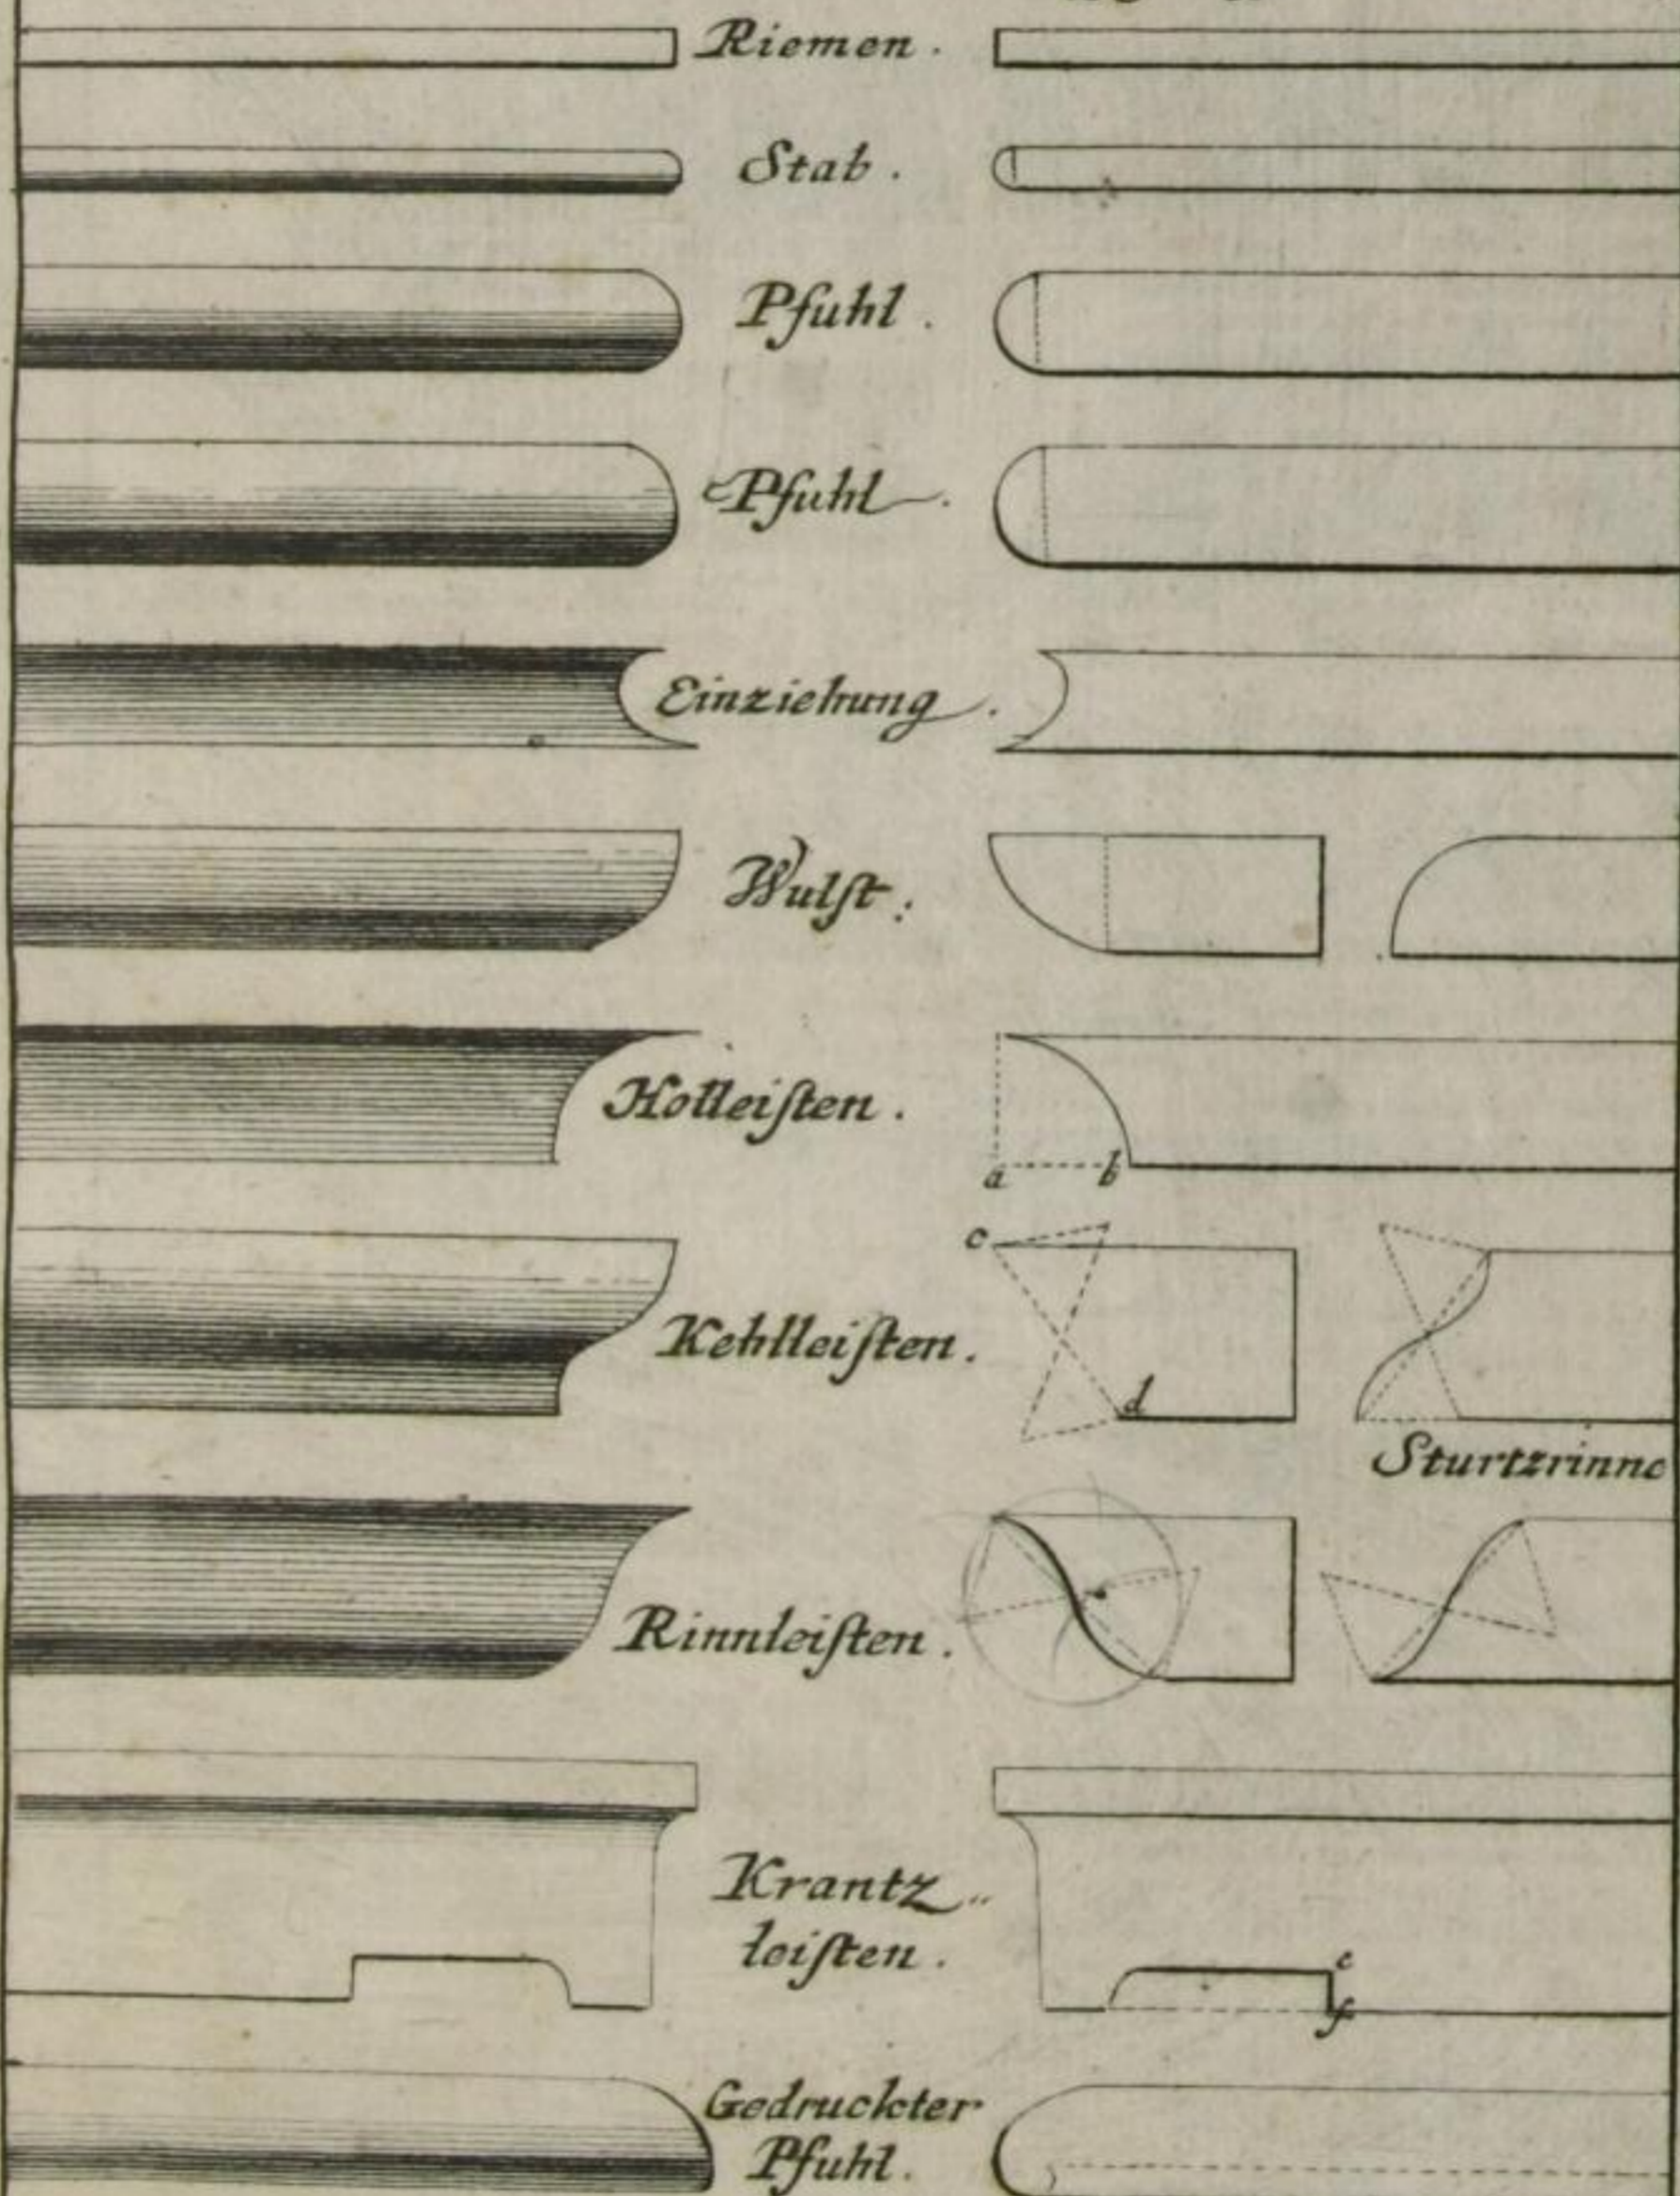 Riemen.
Stab.
Pfuhl.
Pfuhl.
Einziehung.
Wulſt:
Holleiſten.
a b
c
Kehlleiſten.
d
Sturtzrinne
Rinnleiſten.
Krantz
leiſten.
e
f
Gedruckter
Pfuhl.